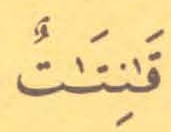 قَٰنِتَٰتٌ